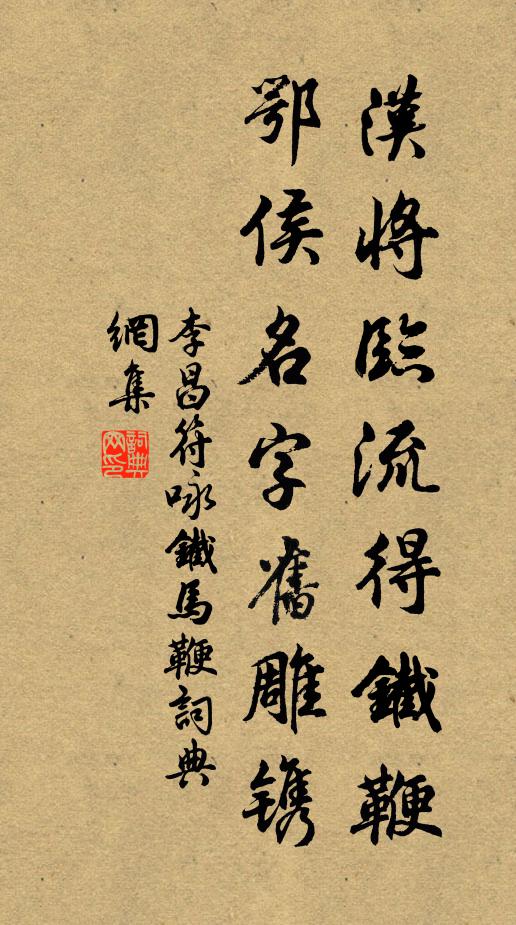 漢將臨流得鐵鞭
鄂侯名字舊雕鐫
李昌符咏鐵馬鞭詞典
網集
詞典
网印